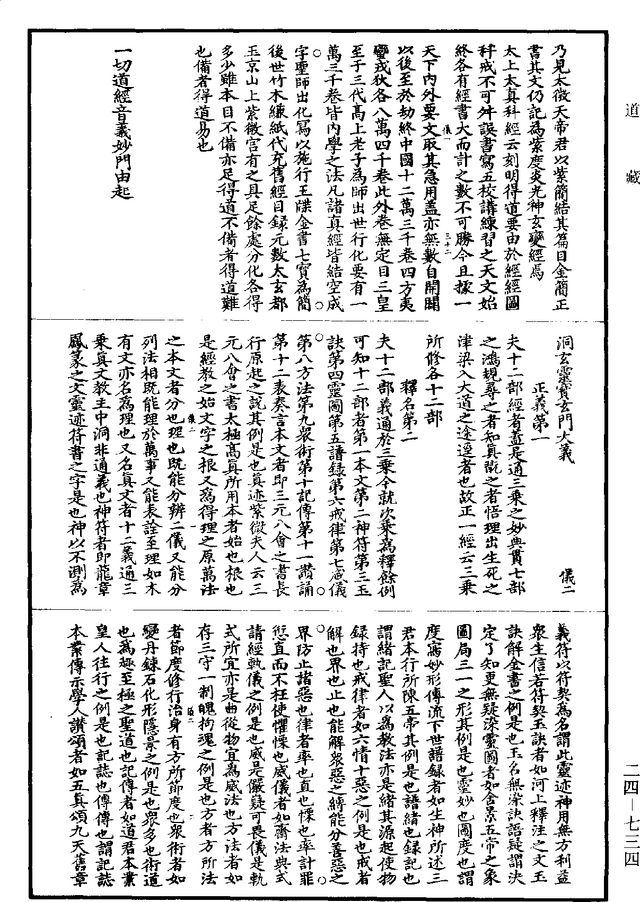 道藏
乃見太微天帝君以紫簡結其篇目金簡正
書其文仍記為紫度炎光神玄變經焉
太上太真科經云刻明得道要由於經經圖
科戒不可舛誤書寫五校講練習之天文始
終各有經書大而計之數不可勝今且據一
天下內外要文取其急用蓋亦無數自開闢
以後至於劫終中國十二萬三千卷四方夷
蠻戎狄各八萬四千卷此外卷無定目三皇
至于三代高上老子為師出世行化要有一
萬三千卷皆內學之法凡諸真經皆結空成
字聖師出化寫以施行王牒金書七寶為簡
後世竹木縑紙代充舊經目錄元數太玄都
玉京山上紫微宮有之具足餘處分化各得
多少雖本目不備亦足得道不備者得道難
也備者得道易也
一切道經音義妙門由起
洞玄靈寶玄門大義
儀二
正義第一
夫十二部經者蓋是通三乘之妙典貫七部
之鴻規尋之者知真翫之者悟理出生死之
津梁入大道之途逕者也故正一經云三乘
所修各十二部
釋名第二
夫十二部義通於三乘今就次乘為釋餘例
可知十二部者第一本文第二神符第三玉
訣第四靈圖第五譜錄第六戒律第七威儀
第八方法第九眾術第十記傳第十一讚誦
第十二表奏言本文者即三元八會之書長
行原起之說其例是也真迹紫微夫人云三
元八會之書太極高真所用本者始也根也
是經教之始文字之根又為得理之原萬法
之本文者分也理也既能分辨二儀又能分
列法相既能理於萬事又能表詮至理如木
有文亦名為理也又名真文者十二義通三
乘真文教主中洞非通義也神符者即龍章
鳳篆之文靈迹符書之字是也神以不測為
義符以符契為名謂此靈迹神用無方利益
眾生信若符契玉訣者如河上釋注之文玉
訣解金書之例是也玉名無染訣語疑謂決
定了知更無疑染靈圖者如含景五帝之象
圖局三一之形其例是也靈妙也圖度也謂
度寫妙形傳流下世譜錄者如生神所述三
君本行所陳五帝其例是也譜緒也錄記也
謂緒記聖人以為教法亦是緒其源起使物
錄持也戒律者如六情十惡之例是也戒者
解也界也止也能解眾惡之縛能分善惡之
界防止諸惡也律者率也直也慄也率計罪
愆直而不枉使懼慄也威儀者如齋法典式
請經軌儀之例是也威是儼嶷可畏儀是軌
式所宜亦是曲從物宜為威法也方法者如
存三守一制魄拘魂之例是也方者方所法
者節度修行治身有方所節度也眾術者如
變丹鍊石化形隱景之例是也眾多也術道
也為趣至極之聖道也記傳者如道君本業
皇人往行之例是也記誌也傳傳也謂記誌
本業傳示學人讚頌者如五真頌九天舊章
二四－七三四